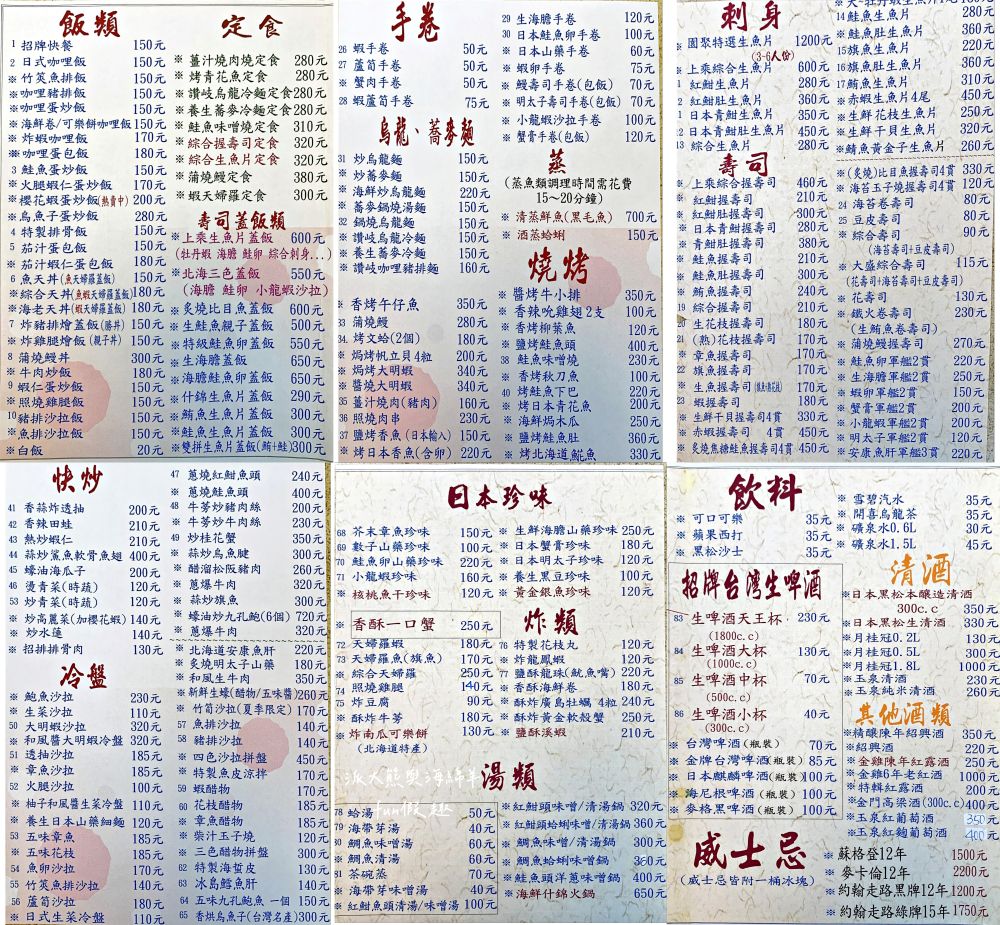 飯類
1 招牌快餐 150元
2 日式咖哩飯 150元
※ 竹筴魚排飯 150元
※ 咖哩豬排飯 150元
※ 咖哩蛋炒飯 150元
※ 海鮮卷/可樂餅咖哩飯 150元
※ 炸蝦咖哩飯 170元
※ 咖哩蛋包飯 180元
3 鮭魚蛋炒飯 150元
※ 火腿蝦仁蛋炒飯 170元
※ 櫻花蝦蛋炒飯(熱賣中) 200元
※ 烏魚子蛋炒飯 280元
4 特製排骨飯 150元
5 茄汁蛋包飯 150元
※ 茄汁蝦仁蛋包飯 180元
6 魚天丼(魚天婦羅蓋飯) 150元
※ 綜合天丼(魚蝦天婦羅蓋飯) 180元
※ 海老天丼(蝦天婦羅蓋飯) 180元
7 炸豬排燴蓋飯(勝丼) 150元
※ 炸雞腿燴飯(親子丼) 150元
8 蒲燒鰻丼 300元
※ 牛肉炒飯 180元
9 蝦仁蛋炒飯 150元
※ 照燒雞腿飯 150元
10 豬排沙拉飯 150元
※ 魚排沙拉飯 150元
※ 白飯 20元
定食
※ 薑汁燒肉燒定食 280元
※ 烤青花魚定食 280元
※ 讚岐烏龍冷麵定食 280元
※ 養生蕎麥冷麵定食 250元
※ 鮭魚味噌燒定食 310元
※ 綜合握壽司定食 320元
※ 綜合生魚片定食 320元
※ 蒲燒鰻定食 380元
※ 蝦天婦羅定食 300元
壽司蓋飯類
※ 上乘生魚片蓋飯 600元
(牡丹蝦 海膽 鮭卵 綜合刺身...)
※ 北海三色蓋飯 550元
(海膽 鮭卵 小龍蝦沙拉)
※ 炙燒比目魚蓋飯 600元
※ 生鮭魚親子蓋飯 500元
※ 特級鮭魚卵蓋飯 550元
※ 生海膽蓋飯 650元
※ 海膽鮭魚卵蓋飯 650元
※ 什錦生魚片蓋飯 290元
※ 鮪魚生魚片蓋飯 300元
※ 鮭魚生魚片蓋飯 300元
※ 雙拼生魚片蓋飯(鮪+鮭) 300元
手卷
26 蝦手卷 50元
27 蘆筍手卷 50元
※ 蟹肉手卷 50元
28 蝦蘆筍手卷 75元
29 生海膽手卷 120元
30 日本鮭魚卵手卷 100元
※ 日本山藥手卷 60元
※ 蝦卵手卷 75元
※ 鰻壽司手卷(包飯) 70元
※ 明太子壽司手卷(包飯) 70元
※ 小龍蝦沙拉手卷 100元
※ 蟹膏手卷(包飯) 120元
烏龍、蕎麥麵
31 炒烏龍麵 150元
※ 炒蕎麥麵 150元
※ 海鮮炒烏龍麵 220元
※ 蕎麥鍋燒湯麵 150元
32 鍋燒烏龍麵 150元
※ 讚岐烏龍冷麵 150元
※ 養生蕎麥冷麵 150元
※ 讚岐咖哩豬排麵 160元
蒸
(蒸魚類調理時間需花費
15～20分鐘)
※ 清蒸鮮魚(黑毛魚) 700元
※ 酒蒸蛤蜊 150元
燒烤
※ 香烤午仔魚 350元
33 蒲燒鰻 280元
34 烤文蛤(2個) 180元
※ 焗烤帆立貝4粒 200元
※ 焗烤大明蝦 340元
※ 醬燒大明蝦 340元
35 薑汁燒肉(豬肉) 160元
36 照燒肉串 230元
37 鹽烤香魚(日本輸入) 150元
※ 烤日本香魚(含卵) 220元
※ 醬烤牛小排 350元
※ 香辣吮雞翅2支 100元
※ 香烤柳葉魚 120元
※ 鹽烤鮭魚頭 400元
38 鮭魚味噌燒 230元
※ 香烤秋刀魚 100元
40 烤鮭魚下巴 220元
※ 烤日本青花魚 200元
※ 海鮮焗木瓜 250元
※ 鹽烤鮭魚肚 360元
※ 烤北海道𩸽魚 330元
刺身
※ 園聚特選生魚片 1200元
(3-6人份)
※ 上乘綜合生魚片 600元
11 紅魽生魚片 280元
12 紅魽肚生魚片 360元
※ 日本青魽生魚片 350元
※ 日本青魽肚生魚片 450元
13 綜合生魚片 280元
14 鮭魚生魚片 280元
※ 鮭魚肚生魚片 360元
15 旗魚生魚片 220元
16 旗魚肚生魚片 360元
17 鮪魚生魚片 310元
※ 赤蝦生魚片4尾 450元
※ 生鮮花枝生魚片 250元
※ 生鮮干貝生魚片 320元
※ 鯡魚黃金子生魚片 260元
壽司
※ 上乘綜合握壽司 460元
※ 紅魽握壽司 210元
※ 紅魽肚握壽司 300元
※ 日本青魽握壽司 280元
※ 青魽肚握壽司 380元
※ 鮭魚握壽司 210元
※ 鮭魚肚握壽司 300元
※ 鮪魚握壽司 240元
19 綜合握壽司 210元
20 生花枝握壽司 180元
21 (熟)花枝握壽司 170元
※ 章魚握壽司 170元
22 旗魚握壽司 170元
※ 生魚握壽司 170元
23 蝦握壽司 180元
※ 生鮮干貝握壽司4貫 330元
※ 赤蝦握壽司 4貫 450元
※ 炙燒焦糖鮭魚握壽司4貫 450元
※ (炙燒)比目魚握壽司4貫 330元
※ 海苔玉子燒握壽司4貫 120元
24 海苔卷壽司 80元
25 豆皮壽司 80元
※ 綜合壽司 90元
(海苔壽司+豆皮壽司)
※ 大盛綜合壽司 115元
(花壽司+海苔壽司+豆皮壽司)
※ 花壽司 130元
※ 鐵火卷壽司 230元
(生鮪魚卷壽司)
※ 蒲燒鰻握壽司 270元
※ 鮭魚卵軍艦2貫 220元
※ 生海膽軍艦2貫 250元
※ 蝦卵軍艦2貫 150元
※ 蟹膏軍艦2貫 200元
※ 小龍蝦軍艦2貫 200元
※ 明太子軍艦2貫 120元
※ 安康魚肝軍艦3貫 220元
快炒
41 香蒜炸透抽 200元
42 香辣田蛙 210元
43 熱炒蝦仁 210元
44 蒜炒鯊魚軟骨魚翅 400元
45 蠔油海瓜子 200元
46 燙青菜(時蔬) 120元
53 炒青菜(時蔬) 120元
※ 炒高麗菜(加櫻花蝦) 140元
※ 炒水蓮 140元
※ 招排排骨肉 130元
47 蔥燒紅魽魚頭 240元
※ 蔥燒鮭魚頭 400元
48 牛蒡炒豬肉絲 200元
※ 牛蒡炒牛肉絲 230元
49 炒桂花蟹 350元
※ 蒜炒烏魚腱 300元
※ 醋溜松阪豬肉 260元
※ 蔥爆牛肉 320元
※ 蒜炒旗魚 300元
※ 蠔油炒九孔鮑(6個) 720元
※ 蔥爆牛肉 320元
冷盤
※ 鮑魚沙拉 230元
※ 生菜沙拉 110元
50 大明蝦沙拉 320元
※ 和風醬大明蝦冷盤 320元
51 透抽沙拉 185元
※ 章魚沙拉 185元
52 火腿沙拉 100元
※ 柚子和風醬生菜冷盤 110元
※ 養生日本山藥細麵 120元
53 五味章魚 185元
※ 五味花枝 185元
54 魚卵沙拉 170元
55 竹筴魚排沙拉 140元
56 蘆筍沙拉 180元
※ 日式生菜冷盤 110元
※ 北海道安康魚肝 220元
※ 炙燒明太子山藥 180元
※ 和風生牛肉 350元
※ 新鮮生蠔(醋物/五味醬) 260元
※ 竹筍沙拉(夏季限定) 170元
57 魚排沙拉 140元
58 豬排沙拉 140元
※ 四色沙拉拼盤 450元
※ 特製魚皮涼拌 170元
59 蝦醋物 170元
60 花枝醋物 185元
※ 章魚醋物 185元
※ 柴汁玉子燒 120元
※ 三色醋物拼盤 300元
62 特製海蜇皮 130元
63 冰島鱈魚肝 140元
64 五味九孔鮑魚 一個 150元
65 香烘烏魚子(台灣名產) 300元
日本珍味
68 芥末章魚珍味 150元
69 數子山藥珍味 100元
70 鮭魚卵山藥珍味 220元
71 小龍蝦珍味 160元
※ 核桃魚干珍味 120元
※ 生鮮海膽山藥珍味 250元
※ 日本蟹膏珍味 180元
※ 日本明太子珍味 120元
※ 養生黑豆珍味 100元
※ 黃金銀魚珍味 120元
※ 香酥一口蟹 250元
炸類
72 天婦羅蝦 180元
73 天婦羅魚(旗魚) 170元
※ 綜合天婦羅 250元
74 照燒雞腿 140元
75 炸豆腐 90元
※ 酥炸牛蒡 180元
※ 炸南瓜可樂餅 130元
(北海道特產)
76 特製花枝丸 120元
※ 炸龍鳳蝦 120元
77 鹽酥龍珠(魷魚嘴) 220元
※ 香酥海鮮卷 180元
※ 酥炸廣島牡蠣 4粒 240元
※ 酥炸黃金軟殼蟹 250元
※ 鹽酥溪蝦 210元
派大熊與海綿羊
fun假趣
湯類
78 蛤湯 50元
79 海帶芽湯 40元
80 鯛魚味噌湯 60元
80 鯛魚清湯 60元
81 茶碗蒸 70元
※ 海帶芽味噌湯 40元
※ 紅魽魚頭清湯/味噌湯 100元
※ 紅魽頭味噌/清湯鍋 320元
※ 紅魽頭蛤蜊味噌/清湯鍋 360元
※ 鯛魚味噌/清湯鍋 300元
※ 鯛魚蛤蜊味噌鍋 360元
※ 鮭魚頭洋蔥味噌鍋 400元
※ 海鮮什錦火鍋 650元
飲料
※ 可口可樂 35元
※ 蘋果西打 35元
※ 黑松沙士 35元
※ 雪碧汽水 35元
※ 開喜烏龍茶 35元
※ 礦泉水0.6L 30元
※ 礦泉水1.5L 45元
招牌台灣生啤酒
83 生啤酒天王杯 230元
(1800c.c)
84 生啤酒大杯 130元
(1000c.c)
85 生啤酒中杯 70元
(500c.c)
86 生啤酒小杯 40元
(300c.c)
※ 台灣啤酒(瓶裝) 70元
※ 金牌台灣啤酒(瓶裝) 85元
※ 日本麒麟啤酒(瓶裝) 100元
※ 海尼根啤酒(瓶裝) 100元
※ 麥格黑啤酒(瓶裝) 100元
清酒
※ 日本黑松本釀造清酒
300c.c 350元
※ 日本黑松生清酒 330元
※ 月桂冠0.2L 130元
※ 月桂冠0.5L 300元
※ 月桂冠1.8L 1000元
※ 玉泉清酒 230元
※ 玉泉純米清酒 260元
其他酒類
※ 精釀陳年紹興 350元
※ 紹興酒 220元
※ 金雞陳年紅露酒 250元
※ 金雞6年老紅酒 1000元
※ 特輯紅露酒 200元
※ 金門高梁酒(300c.c) 400元
※ 玉泉紅葡萄酒 350元
※ 玉泉紅麴葡萄酒 400元
威士忌
(威士忌皆附一桶冰塊)
※ 蘇格登12年 1500元
※ 麥卡倫12年 2200元
※ 約翰走路黑牌12年 1200元
※ 約翰走路綠牌15年 1750元